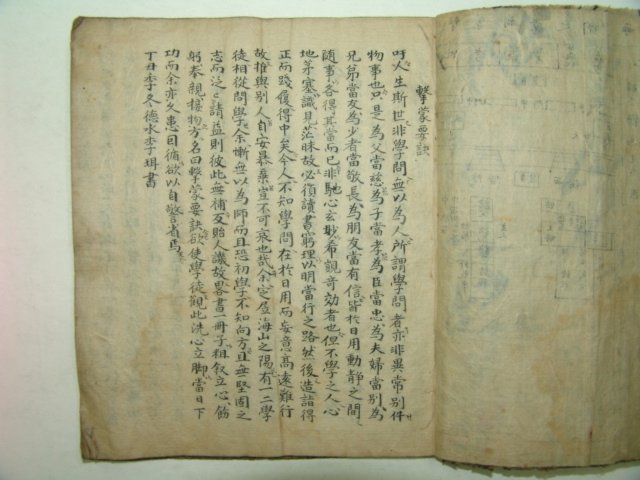 擊蒙要訣
人生斯世非學問無以為人所謂學問者亦非異常別件
物事也只是為父當慈為子當孝為臣當忠為夫婦當別為
兄弟當友為少者當敬長為朋友當有信皆於日用動靜之間
隨事各得其當而已非馳心玄妙希覬奇効者也但不學之人心
地茅塞識見茫昧故必須讀書窮理以明當行之路然後造詣得
正而踐履得中矣今人不知學問在於日用而妄意高遠難行
故推與別人自安暴棄豈不可哀也哉余定居海山之陽有一二學
徒相從問學余慚無以為師而且恐初學不知向方且無堅固之
志而泛〻請益則彼此無補反貽人譏故畧書一冊子粗叙立心飭
躬奉親接物方名曰擊蒙要訣欲使學徒觀此洗心立脚當日下
功而余亦久患因循欲以自警省焉
丁丑季冬德水李珥書